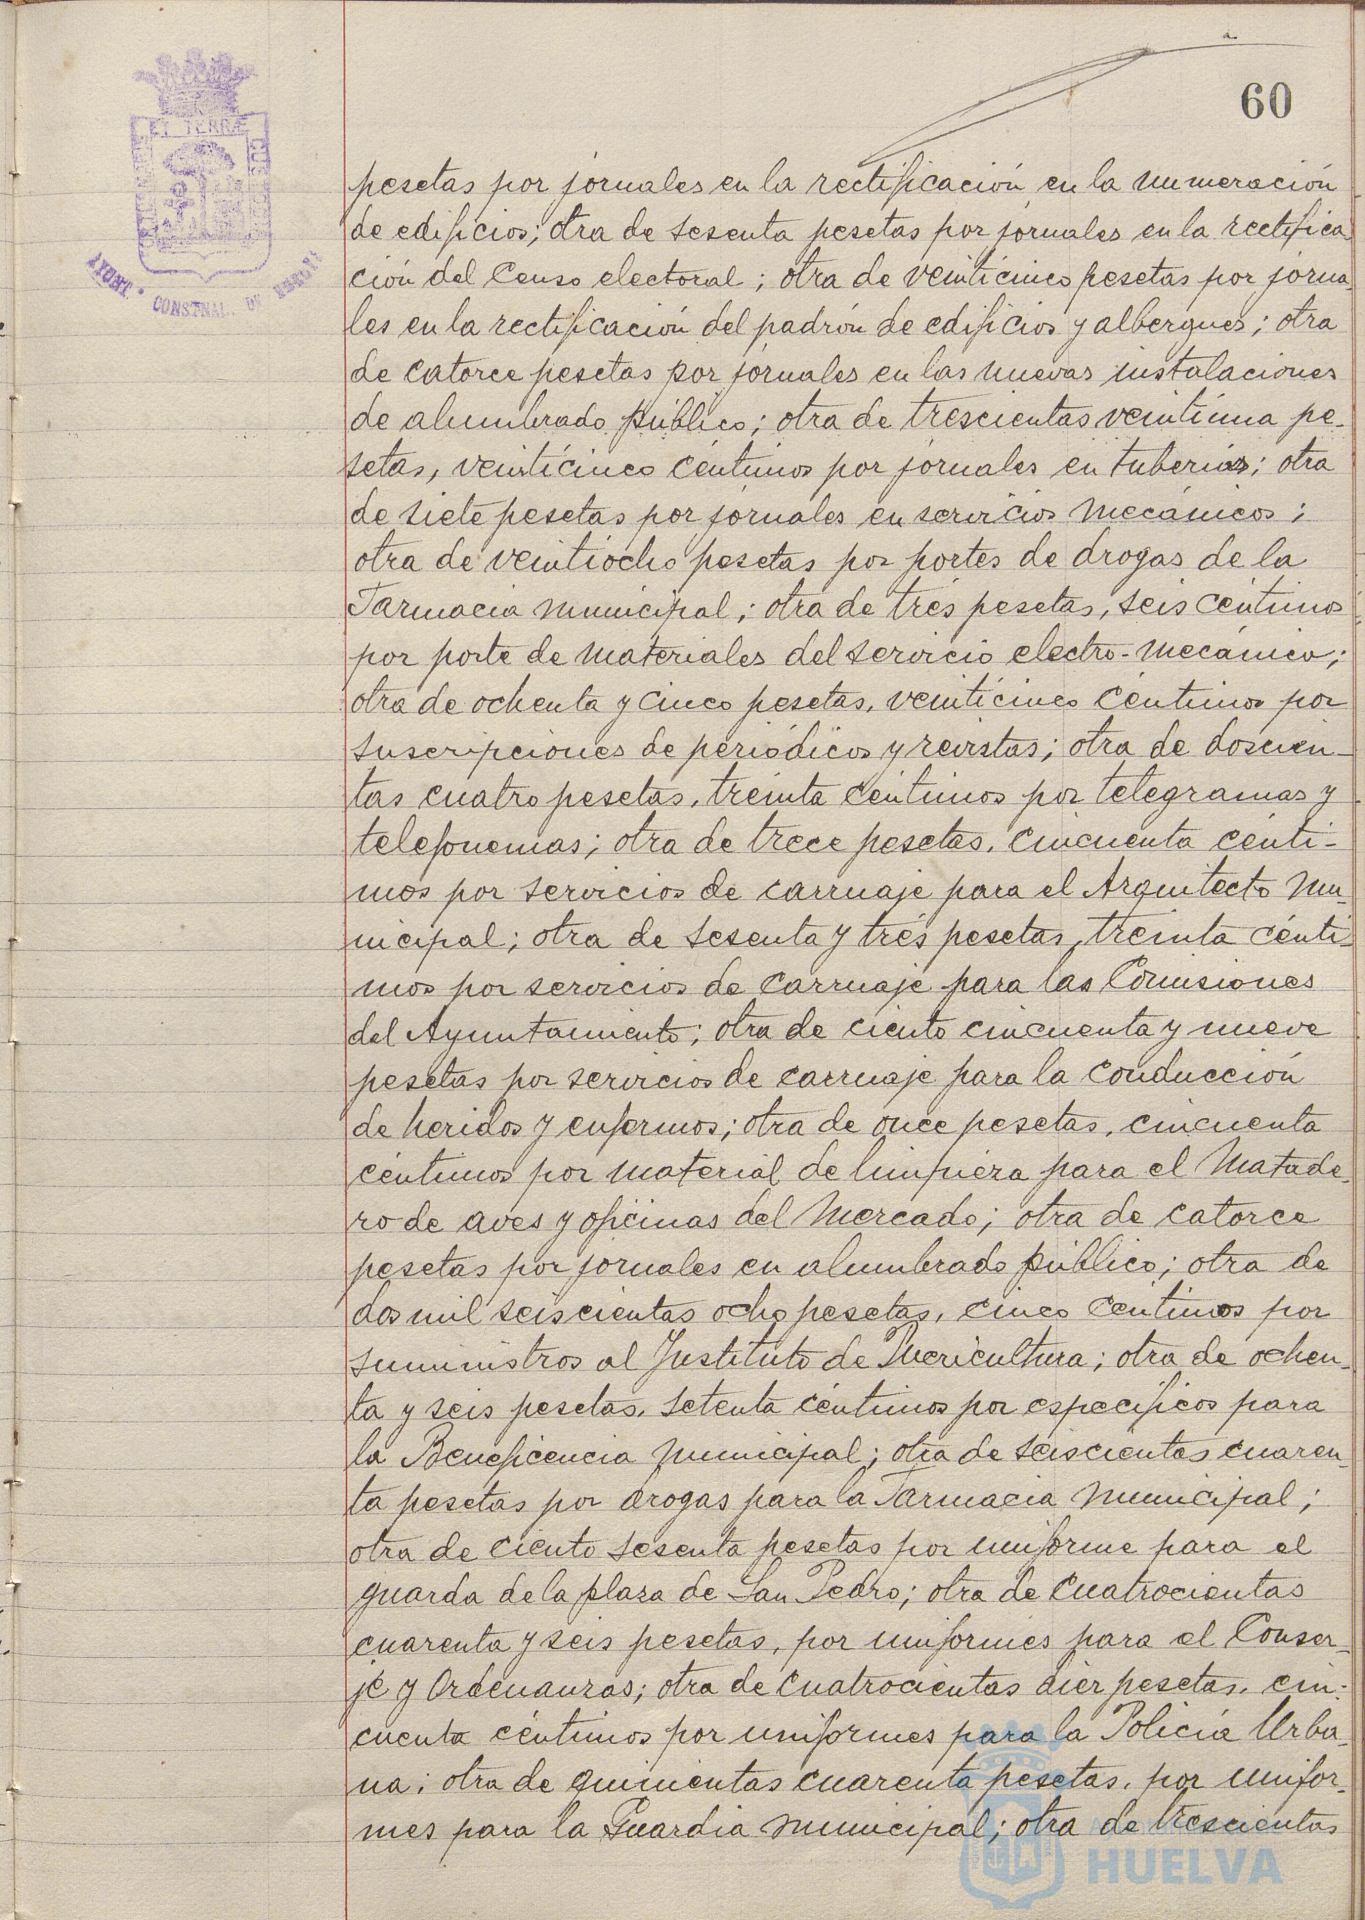 60
ET TERRÆ
AYUNT. CONSTNAL. DE
pesetas por jornales en la rectificación en la numeración
de edificios; otra de sesenta pesetas por jornales en la rectifica
ción del Censo electoral; otra de veinticinco pesetas por jorna-
les en la rectificación del padrón de edificios y albergues; otra
de catorce pesetas por jornales en las nuevas instalaciones
de alumbrado público; otra de trescientas veintiuna pe-
setas, veinticinco céntimos por jornales en tuberías; otra
de siete pesetas por jornales en servicios mecánicos;
otra de veintiocho pesetas por portes de drogas de la
Farmacia municipal; otra de trés pesetas, seis céntimos
por porte de materiales del servicio electro-mecánico;
otra de ochenta y cinco pesetas, veinticinco céntimos por
suscripciones de periódicos y revistas; otra de doscien-
tas cuatro pesetas, treinta céntimos por telegramas y
telefonemas; otra de trece pesetas, cincuenta cénti-
mos por servicios de carruaje para el Arquitecto mu-
nicipal; otra de sesenta y trés pesetas, treinta cénti-
mos por servicios de carruaje para las Comisiones
del Ayuntamiento; otra de ciento cincuenta y nueve
pesetas por servicios de carruaje para la conducción
de heridos y enfermos; otra de once pesetas, cincuenta
céntimos por material de limpieza para el Matade-
ro de aves y oficinas del Mercado; otra de catorce
pesetas por jornales en alumbrado público; otra de
dos mil seiscientas ocho pesetas, cinco céntimos por
suministros al Instituto de Puericultura; otra de ochen-
ta y seis pesetas, setenta céntimos por específicos para
la Beneficencia municipal; otra de seiscientas cuaren-
ta pesetas por drogas para la Farmacia municipal;
otra de ciento sesenta pesetas por uniforme para el
guarda de la plaza de San Pedro; otra de cuatrocientas
cuarenta y seis pesetas, por uniformes para el Conser-
je y Ordenanzas; otra de cuatrocientas diez pesetas, cin-
cuenta céntimos por uniformes para la Policía Urba-
na; otra de quinientas cuarenta pesetas, por unifor-
mes para la Guardia municipal; otra de trescientas
HUELVA